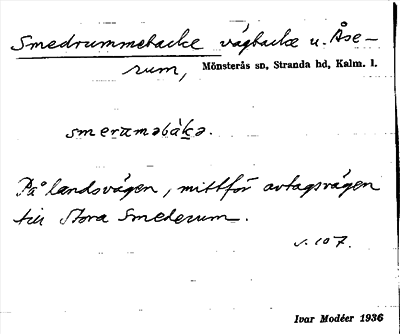 Smedrummebacke vägbacke u. Åse-
rum, Mönsterås sn, Stranda hd, Kalm. l.
smeramǝbakǝ.
På landsvägen, mittför avtagsvägen
till Stora Smederum.
s. 107.
Ivar Modéer 1936